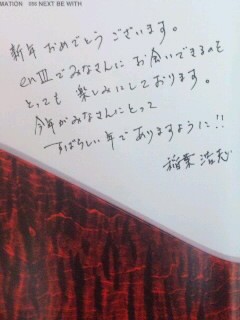 MATION IIII NEXT BE WITH
新年おめでとうございます。
enⅢでみなさんにお会いできるのも
とっても楽しみにしております。
今年がみなさんにとって
すばらしい年でありますように!!
稲葉浩志